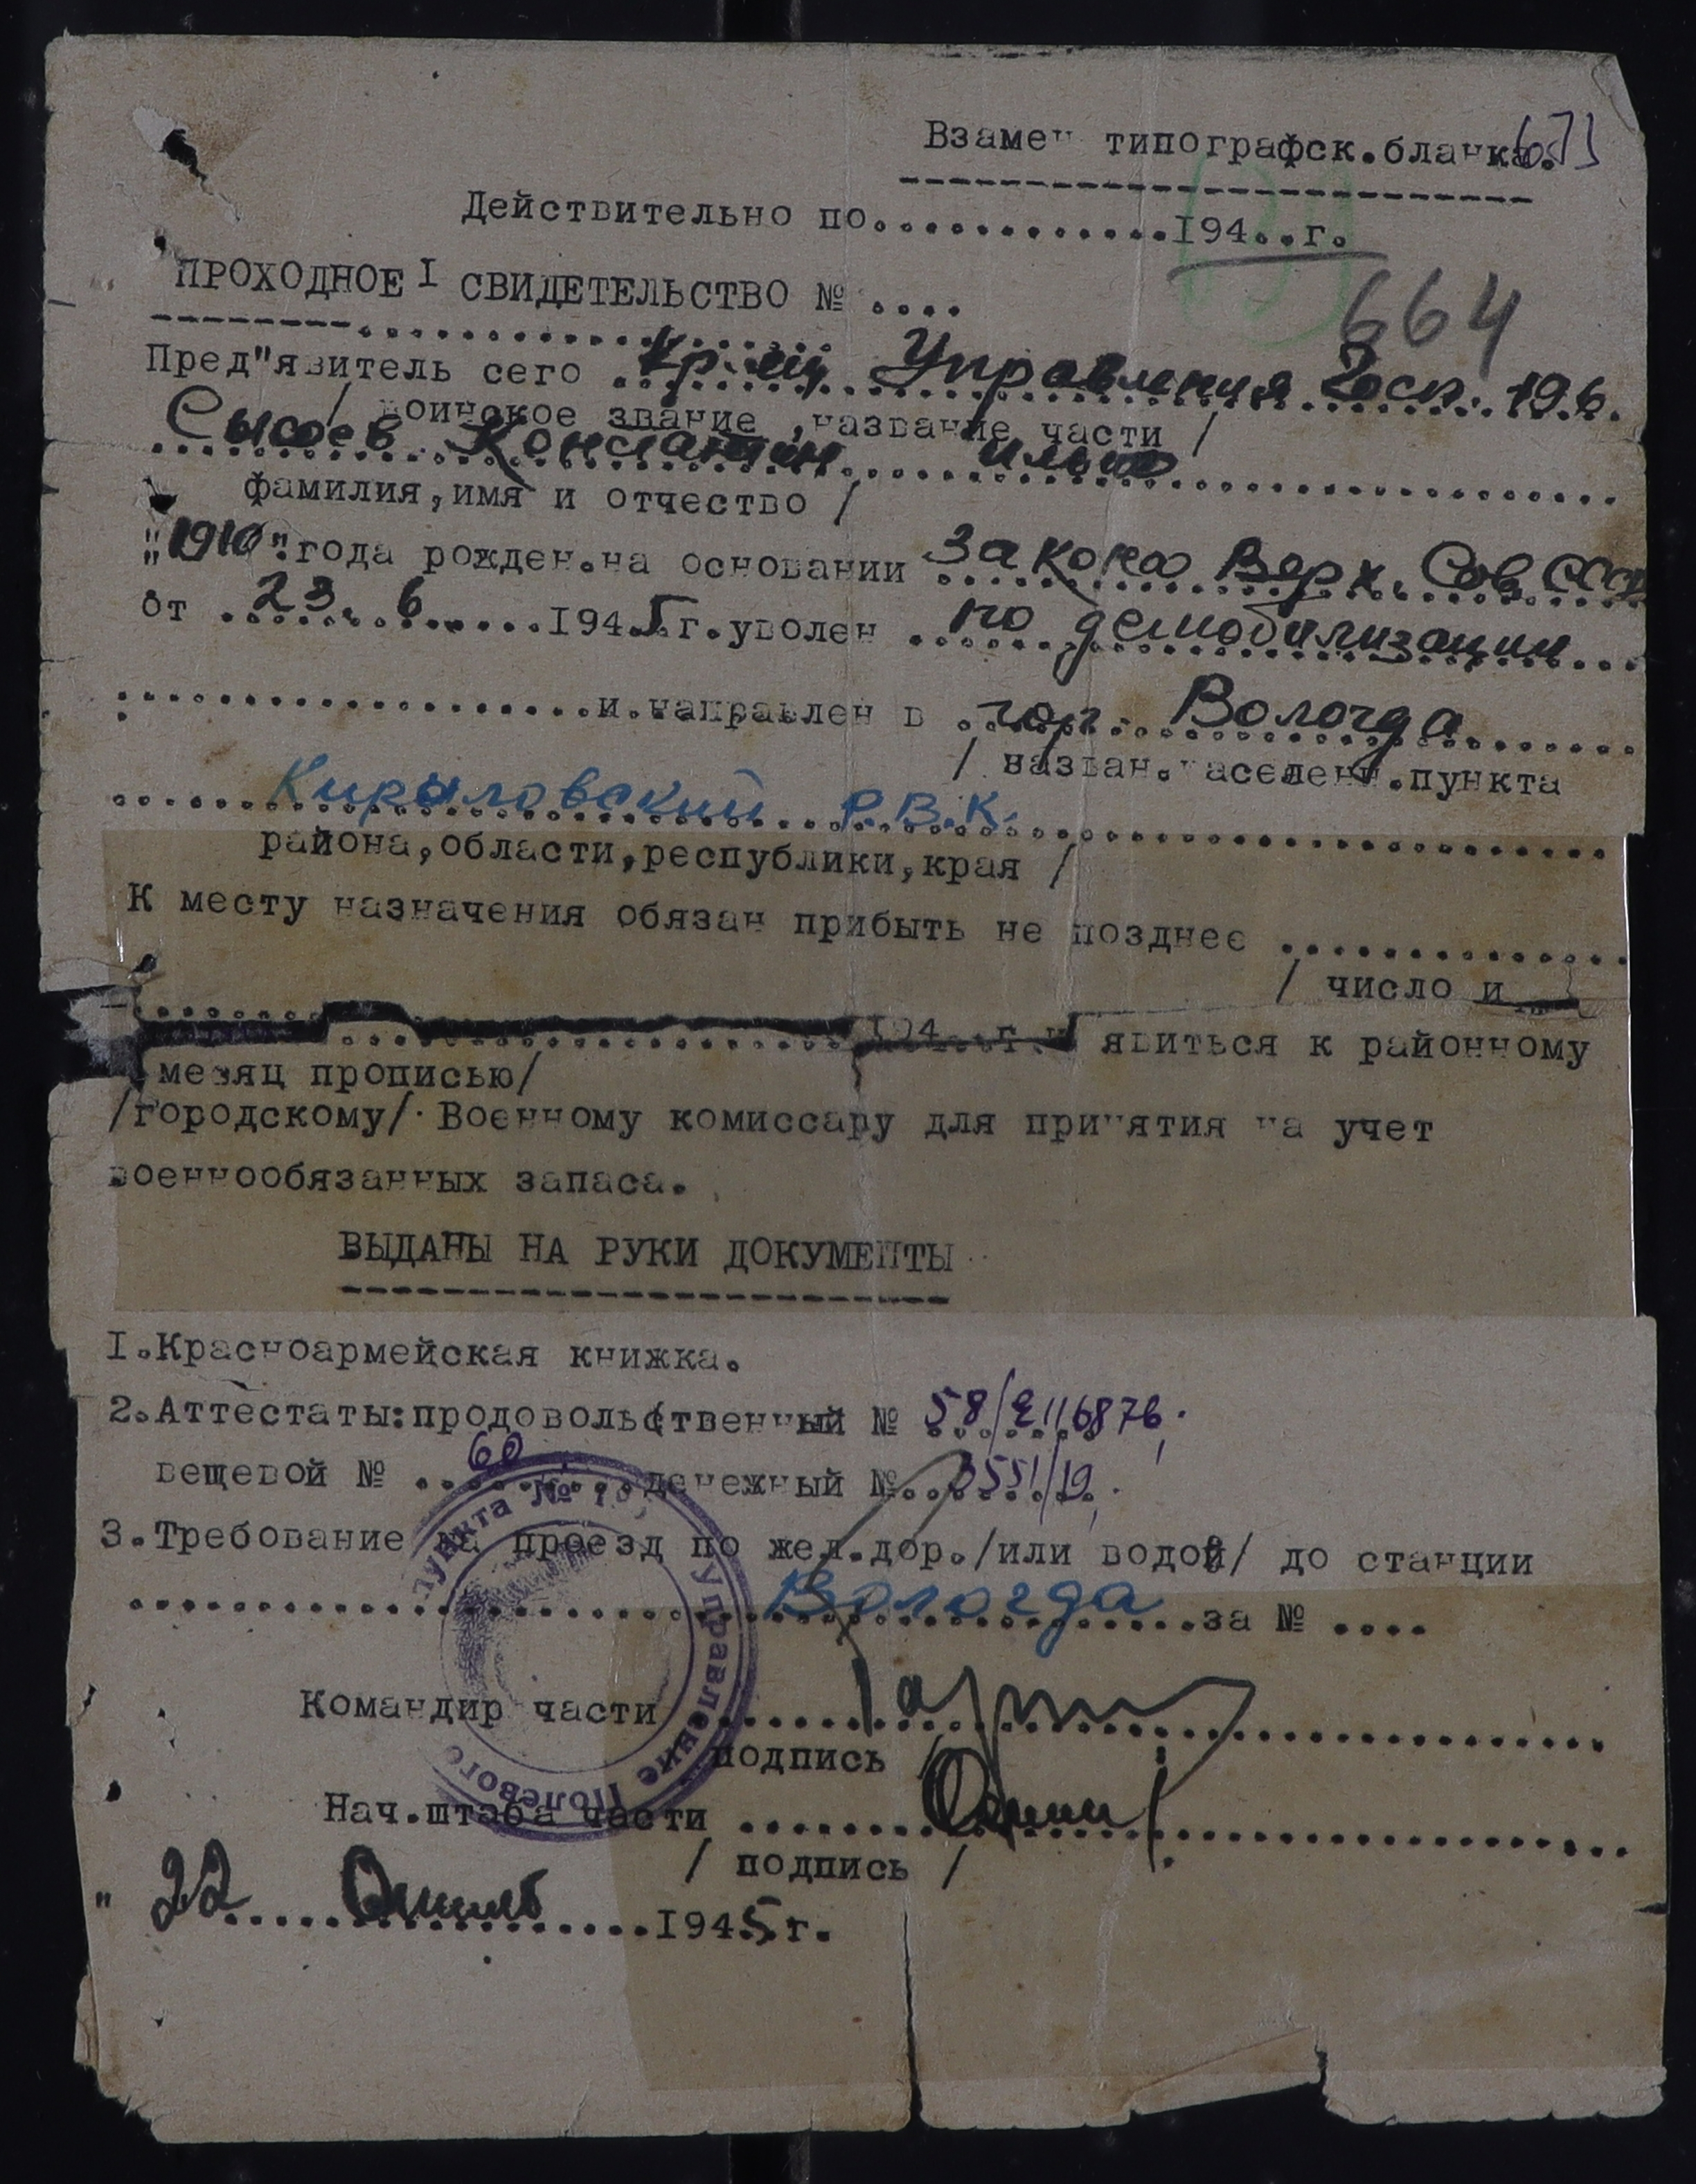 Взамен типографск.бланка.
Действительно по.............194...г.
664
ПРОХОДНОЕ I СВИДЕТЕЛЬСТВО № ....
Пред"явитель сего Кр-ец Управления
/ воинское звание ,название части /
Сысоев Константин Ильич
фамилия,имя и отчество /
"1910".года рожден.на основании Закона Верх. Сов СССР
от .23. 6......1945 г.уволен по демобилизации...
...................и.направлен в гор. Вологда
/ назван.населенн.пункта
Кириловский Р.В.К.
района,области,республики,края /
К месту назначения обязан прибыть не позднее ..............
/ число и
194...г.и явиться к районному
месяц прописью/
/городскому/ Военному комиссару для принятия на учет
военнообязанных запаса.
ВЫДАНЫ НА РУКИ ДОКУМЕНТЫ
1.Красноармейская книжка.
2.Аттестаты:продовольственный № 58/
вещевой № 60 денежный № 3551/19
3.Требование на проезд по жел.дор./или водой/ до станции
Вологда за № ....
Командир части
подпись /
Нач.штаба части
/ подпись /
" 22 1945г.
Управление Полевого пункта №